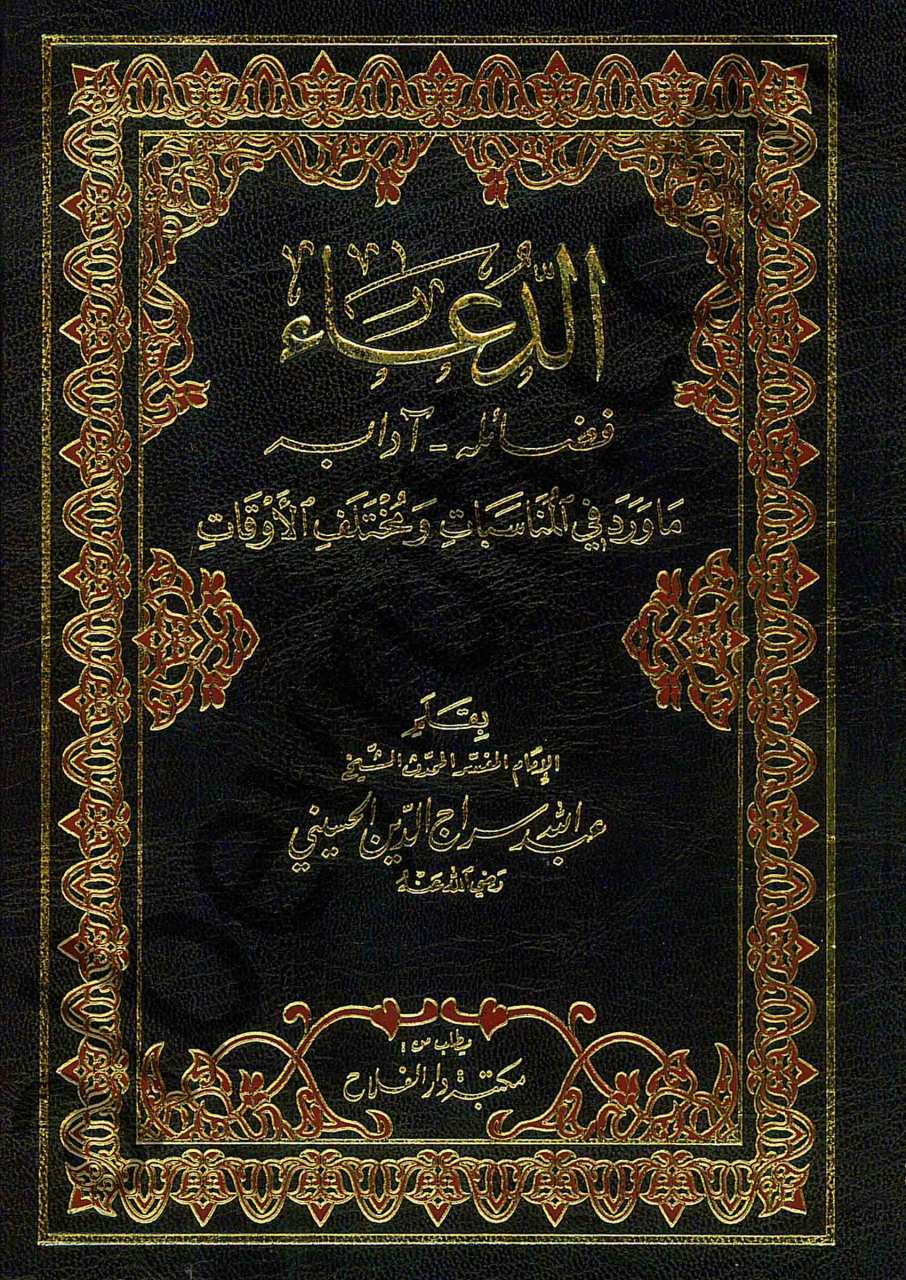 الدُّعَاء
فضائله - آدابه
مَا وَرَدَ فِي ٱلْمُنَاسَبَاتِ وَمُخْتَلَفِ ٱلْأَوْقَاتِ
بِقَلَم
الإمام المفسر المحدث الشيخ
عبد الله سراج الدين الحسيني
رَضِيَ ٱللهُ عَنْهُ
يطلب من :
مكتبة دار الفلاح